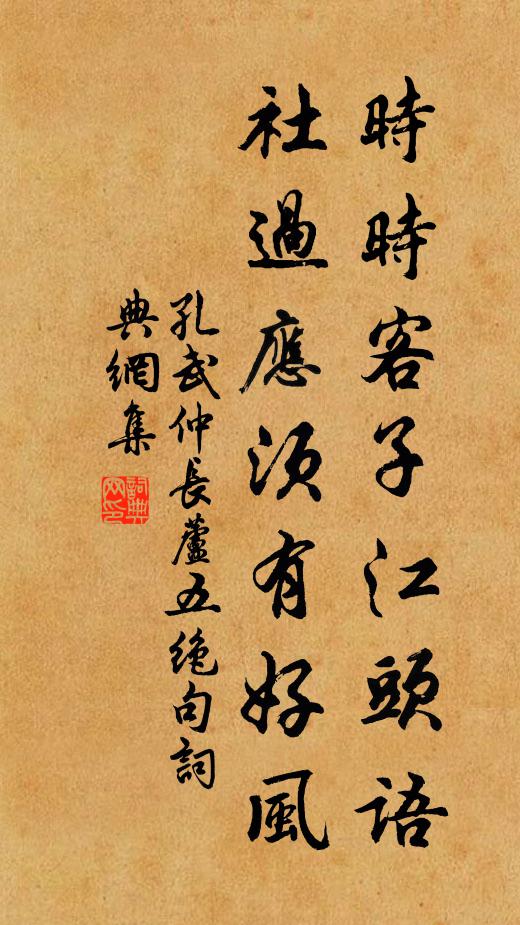 時時客子江頭語
社過應須有好風
孔武仲長蘆五絶句詞
典網集
詞典
网印